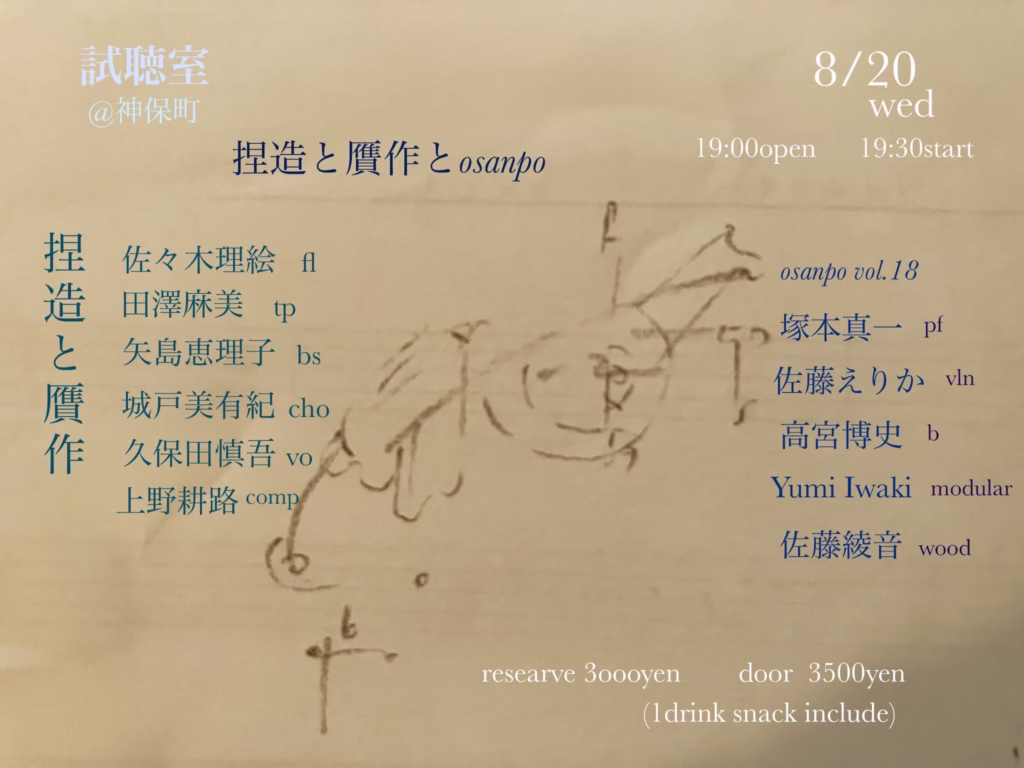 試聴室
@神保町
8/20
wed
19:00open 19:30start
捏造と贋作とosanpo
捏造と贋作
佐々木理絵 fl
田澤麻美 tp
矢島恵理子 bs
城戸美有紀 cho
久保田慎吾 vo
上野耕路 comp
osanpo vol.18
塚本真一 pf
佐藤えりか vln
高宮博史 b
Yumi Iwaki modular
佐藤綾音 wood
researve 3oooyen door 3500yen
(1drink snack include)